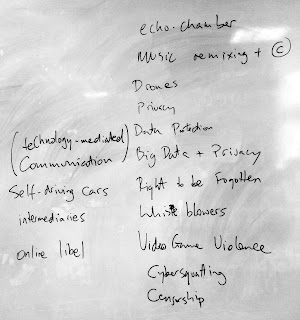 echo-chamber
Music remixing + ©
Drones
Privacy
Data Protection
Big Data + Privacy
Right to be Forgotten
Whistle blowers
Video Game Violence
Cybersquatting
Censorship
(technology-mediated
Communication)
Self-driving cars
intermediaries
online libel